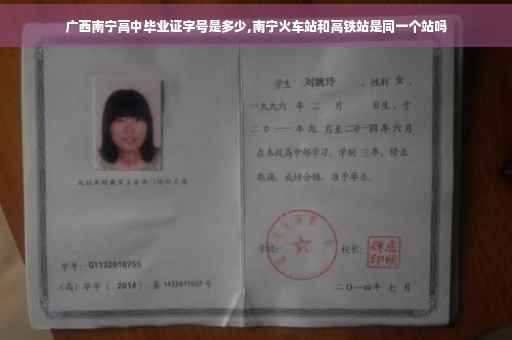 广西南宁高中毕业证字号是多少,南宁火车站和高铁站是同一个站吗
学生 刘婉玲 ,性别 女 ,
一九九六 年 二 月 日生,于
二〇一一年九 月至二〇一四年六月
在本校高中部学习,学制 三年,修业
期满,成绩合格,准予毕业。
学号: G1132010755
(高)毕字( 2014 )第 1432011027 号
学校:
校长:
二〇一四年 七 月